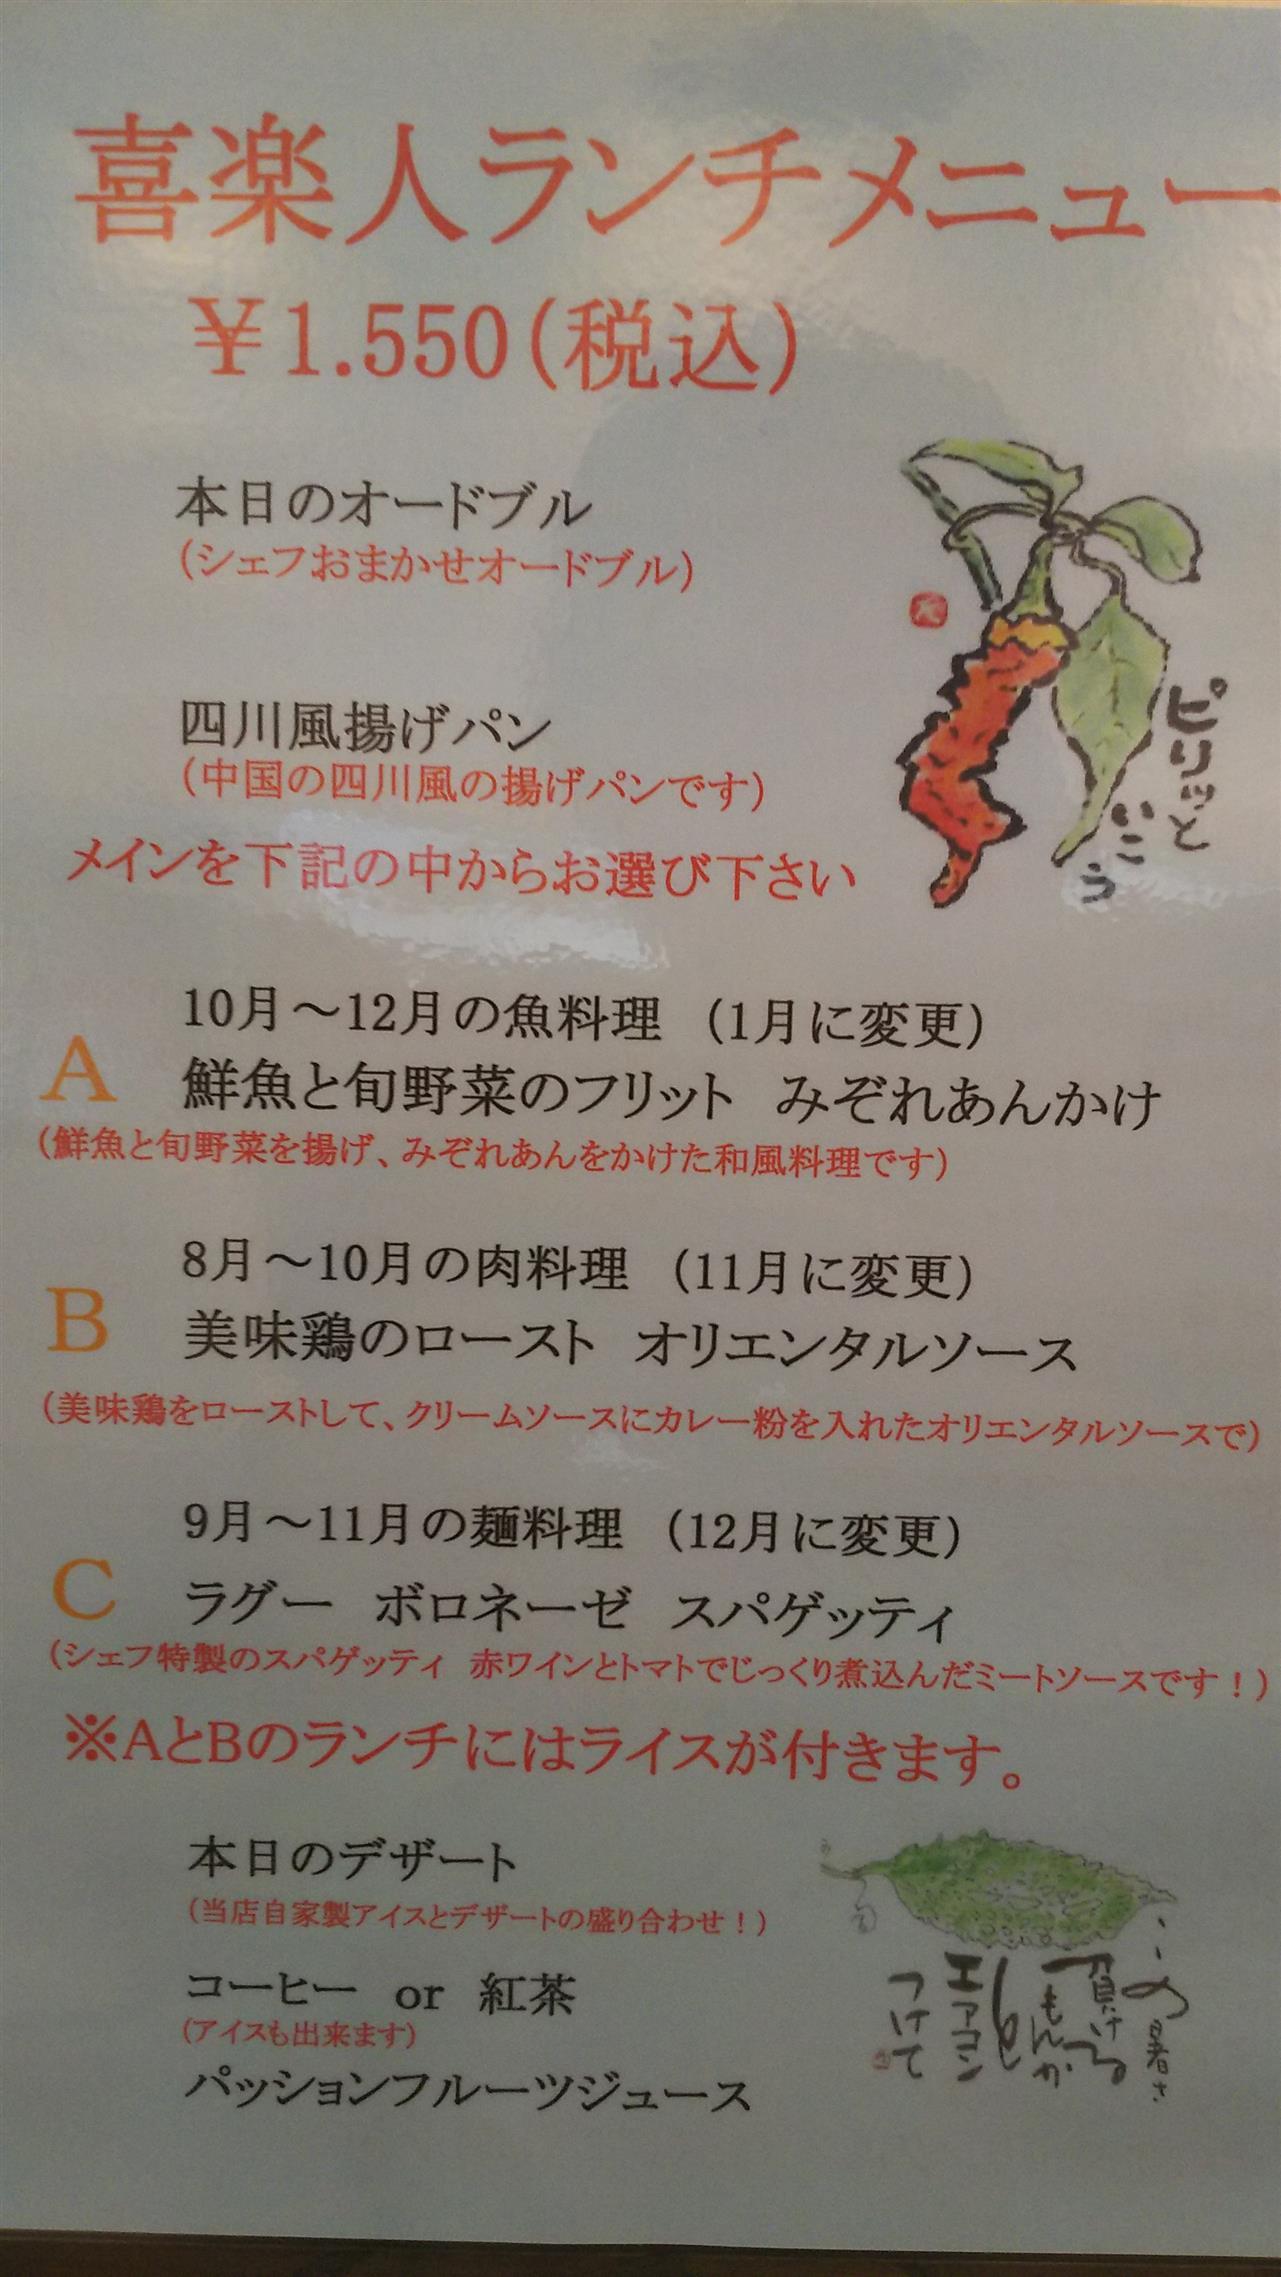 喜楽人ランチメニュー
￥1.550(税込)
本日のオードブル
(シェフおまかせオードブル)
四川風揚げパン
(中国の四川風の揚げパンです)
ピリッと
いこう
メインを下記の中からお選び下さい
10月～12月の魚料理 (1月に変更)
A 鮮魚と旬野菜のフリット みぞれあんかけ
(鮮魚と旬野菜を揚げ、みぞれあんをかけた和風料理です)
8月～10月の肉料理 (11月に変更)
B 美味鶏のロースト オリエンタルソース
(美味鶏をローストして、クリームソースにカレー粉を入れたオリエンタルソースで)
9月～11月の麺料理 (12月に変更)
C ラグー ボロネーゼ スパゲッティ
(シェフ特製のスパゲッティ 赤ワインとトマトでじっくり煮込んだミートソースです！)
※AとBのランチにはライスが付きます。
本日のデザート
(当店自家製アイスとデザートの盛り合わせ！)
コーヒー or 紅茶
(アイスも出来ます)
パッションフルーツジュース
この暑さ
負ける
もんか
エアコン
つけて